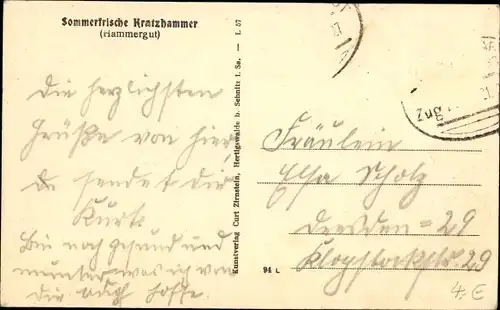 Sommerfrische Kratzhammer
(Hammergut)
Die herzlichsten
Grüße von hier
sendet dir
Kurt.
Bin noch gesund und
munter was ich von
dir auch hoffe.
Kunstverlag Curt Zirnstein, Hertigswalde b. Sebnitz i. Sa. — L 37
94 L
Zug
Fräulein
Elsa Scholz
Dresden=29
Klopstockstr. 29
4.-€